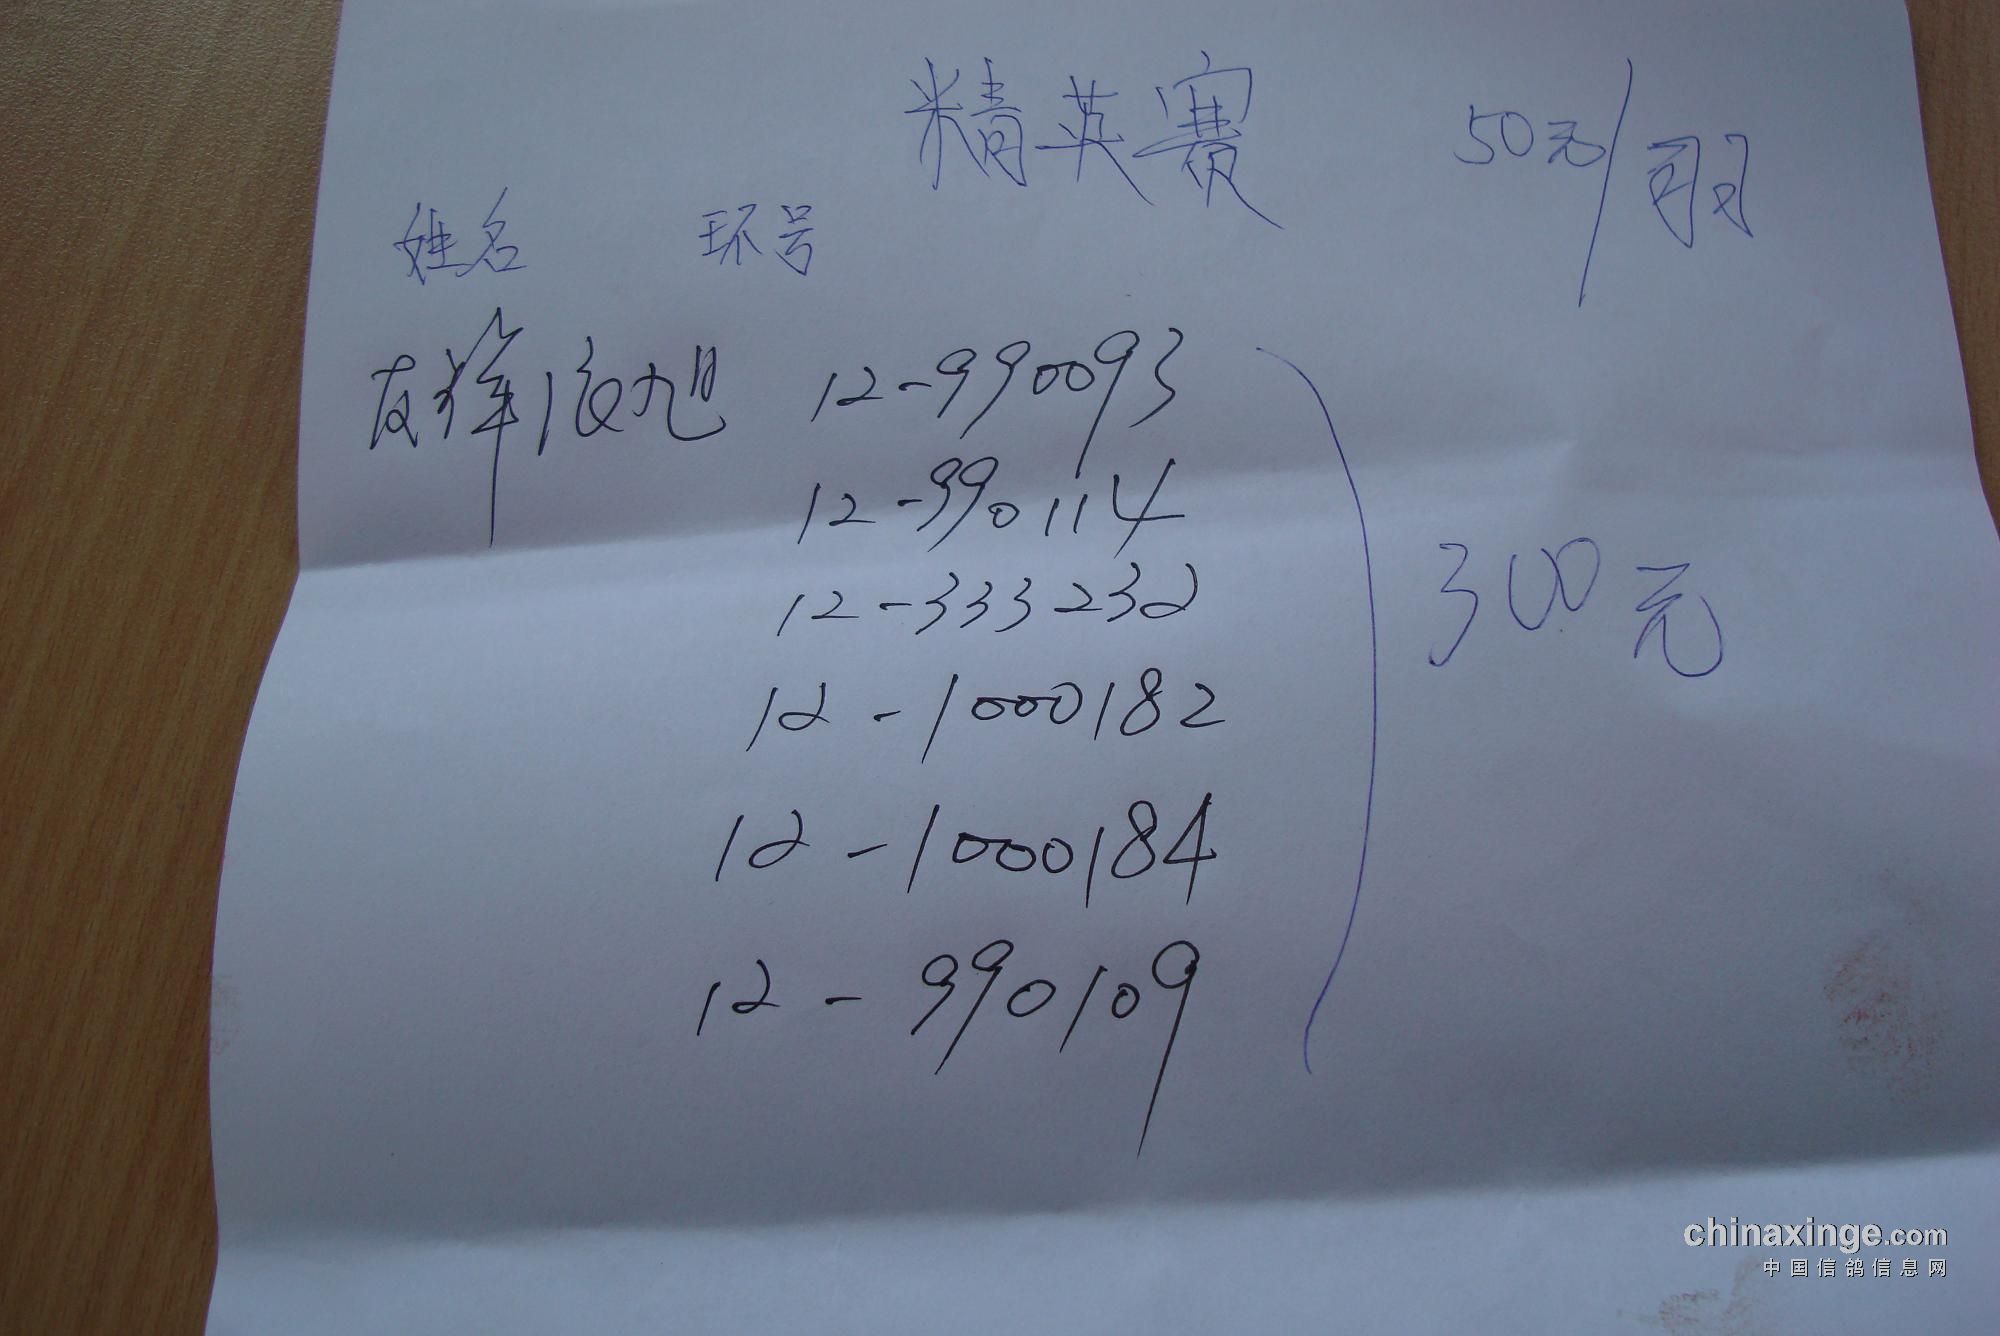 精英赛 50元/羽
姓名 环号
友祥 张旭 12-990093
12-990114
12-333232
12-1000182
12-1000184
12-990109
300元
chinaxinge.com
中国信鸽信息网